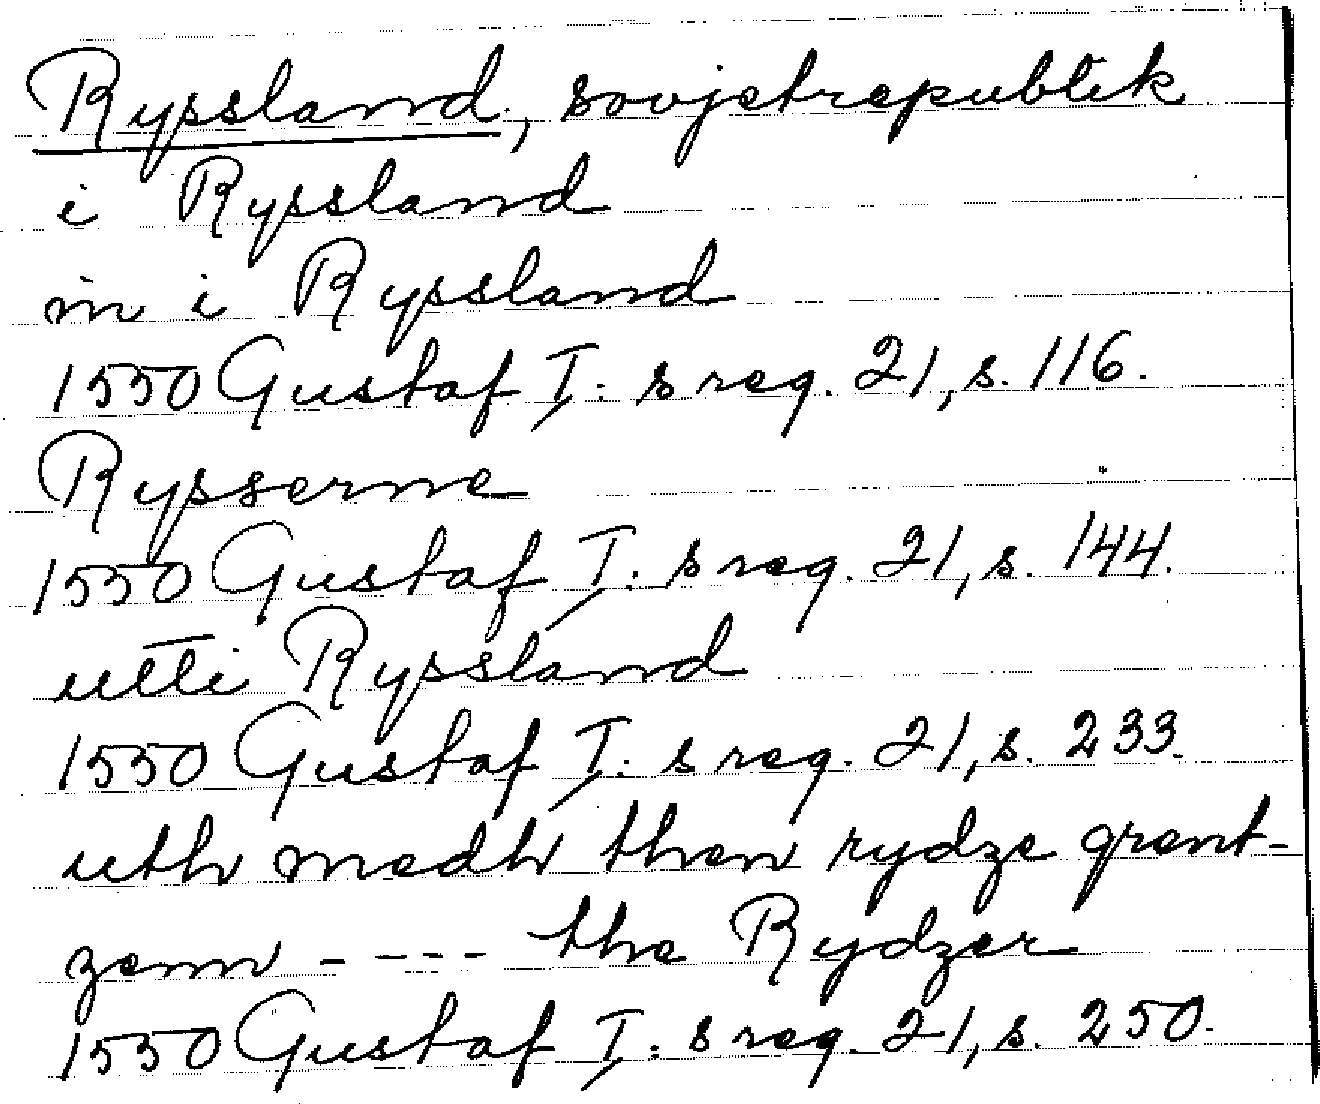 Ryssland, sovjetrepublik
i Ryssland
in i Ryssland
1550 Gustaf I: s reg. 21, s. 116.
Rysserne
1550 Gustaf I: s reg. 21, s. 144.
utti Ryssland
1550 Gustaf I: s reg. 21, s. 233.
uth medh then rydze grent-
zenn - - - - the Rydzer
1550 Gustaf I: s reg. 21, s. 250.